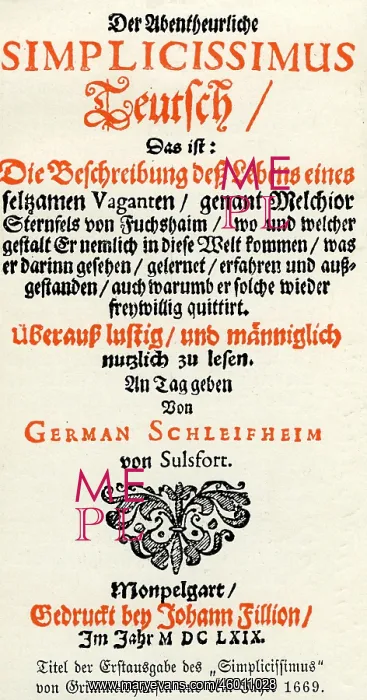 Der Abentheurliche
SIMPLICISSIMUS
Teutsch /
Das ist:
Die Beschreibung deß Lebens eines
seltzamen Vaganten / genant Melchior
Sternfels von Fuchshaim / wo und welcher
gestalt Er nemlich in diese Welt kommen / was
er darinn gesehen / gelernet / erfahren und auß-
gestanden / auch warumb er solche wieder
freywillig quittirt.
Überauß lustig / und männiglich
nutzlich zu lesen.
An Tag geben
Von
GERMAN SCHLEIFHEIM
von Sulsfort.
Monpelgart /
Gedruckt bey Johann Fillion /
Im Jahr M DC LXIX.
Titel der Erstausgabe des „Simplicissimus“
von 1669.
ME
PL
ME
PL
www.maryevans.com/46011028